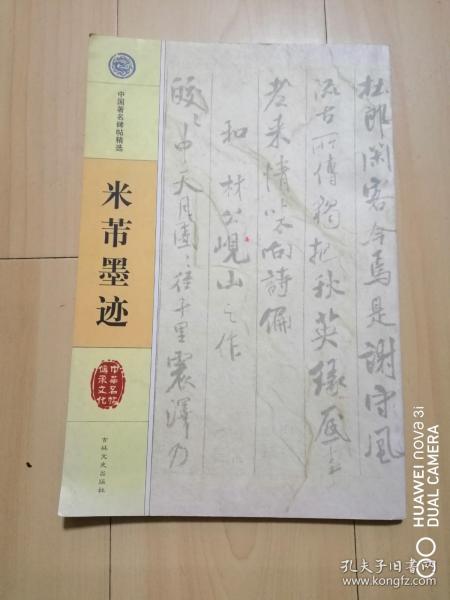 中国著名碑帖精选
米芾墨迹
中华名帖
传承文化
吉林文史出版社
杜郎閑客今焉是謝守風
流古所傳獨把秋英緣底事
老来情味向詩偏
和林公峴山之作
皎々中天月團々徑千里震澤乃
HUAWEI nova 3i
DUAL CAMERA
孔夫子旧书网
www.kongfz.com